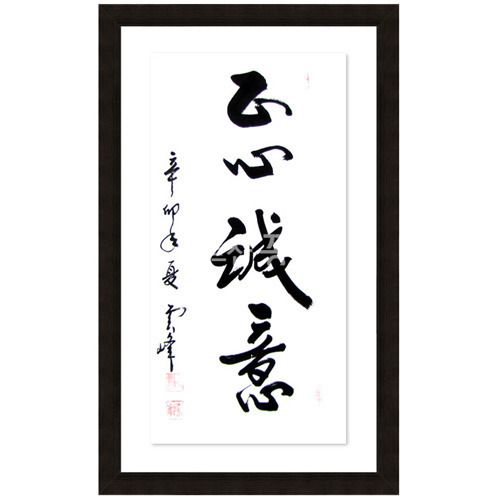 正心誠意
辛卯年夏
雲峰